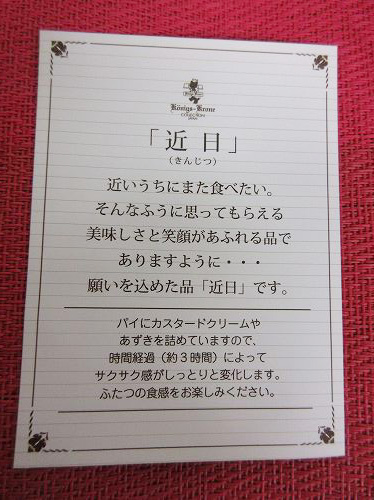 Königs-Krone
COLLECTION
「近日」
(きんじつ)
近いうちにまた食べたい。
そんなふうに思ってもらえる
美味しさと笑顔があふれる品で
ありますように・・・
願いを込めた品「近日」です。
パイにカスタードクリームや
あずきを詰めていますので、
時間経過(約3時間)によって
サクサク感がしっとりと変化します。
ふたつの食感をお楽しみください。